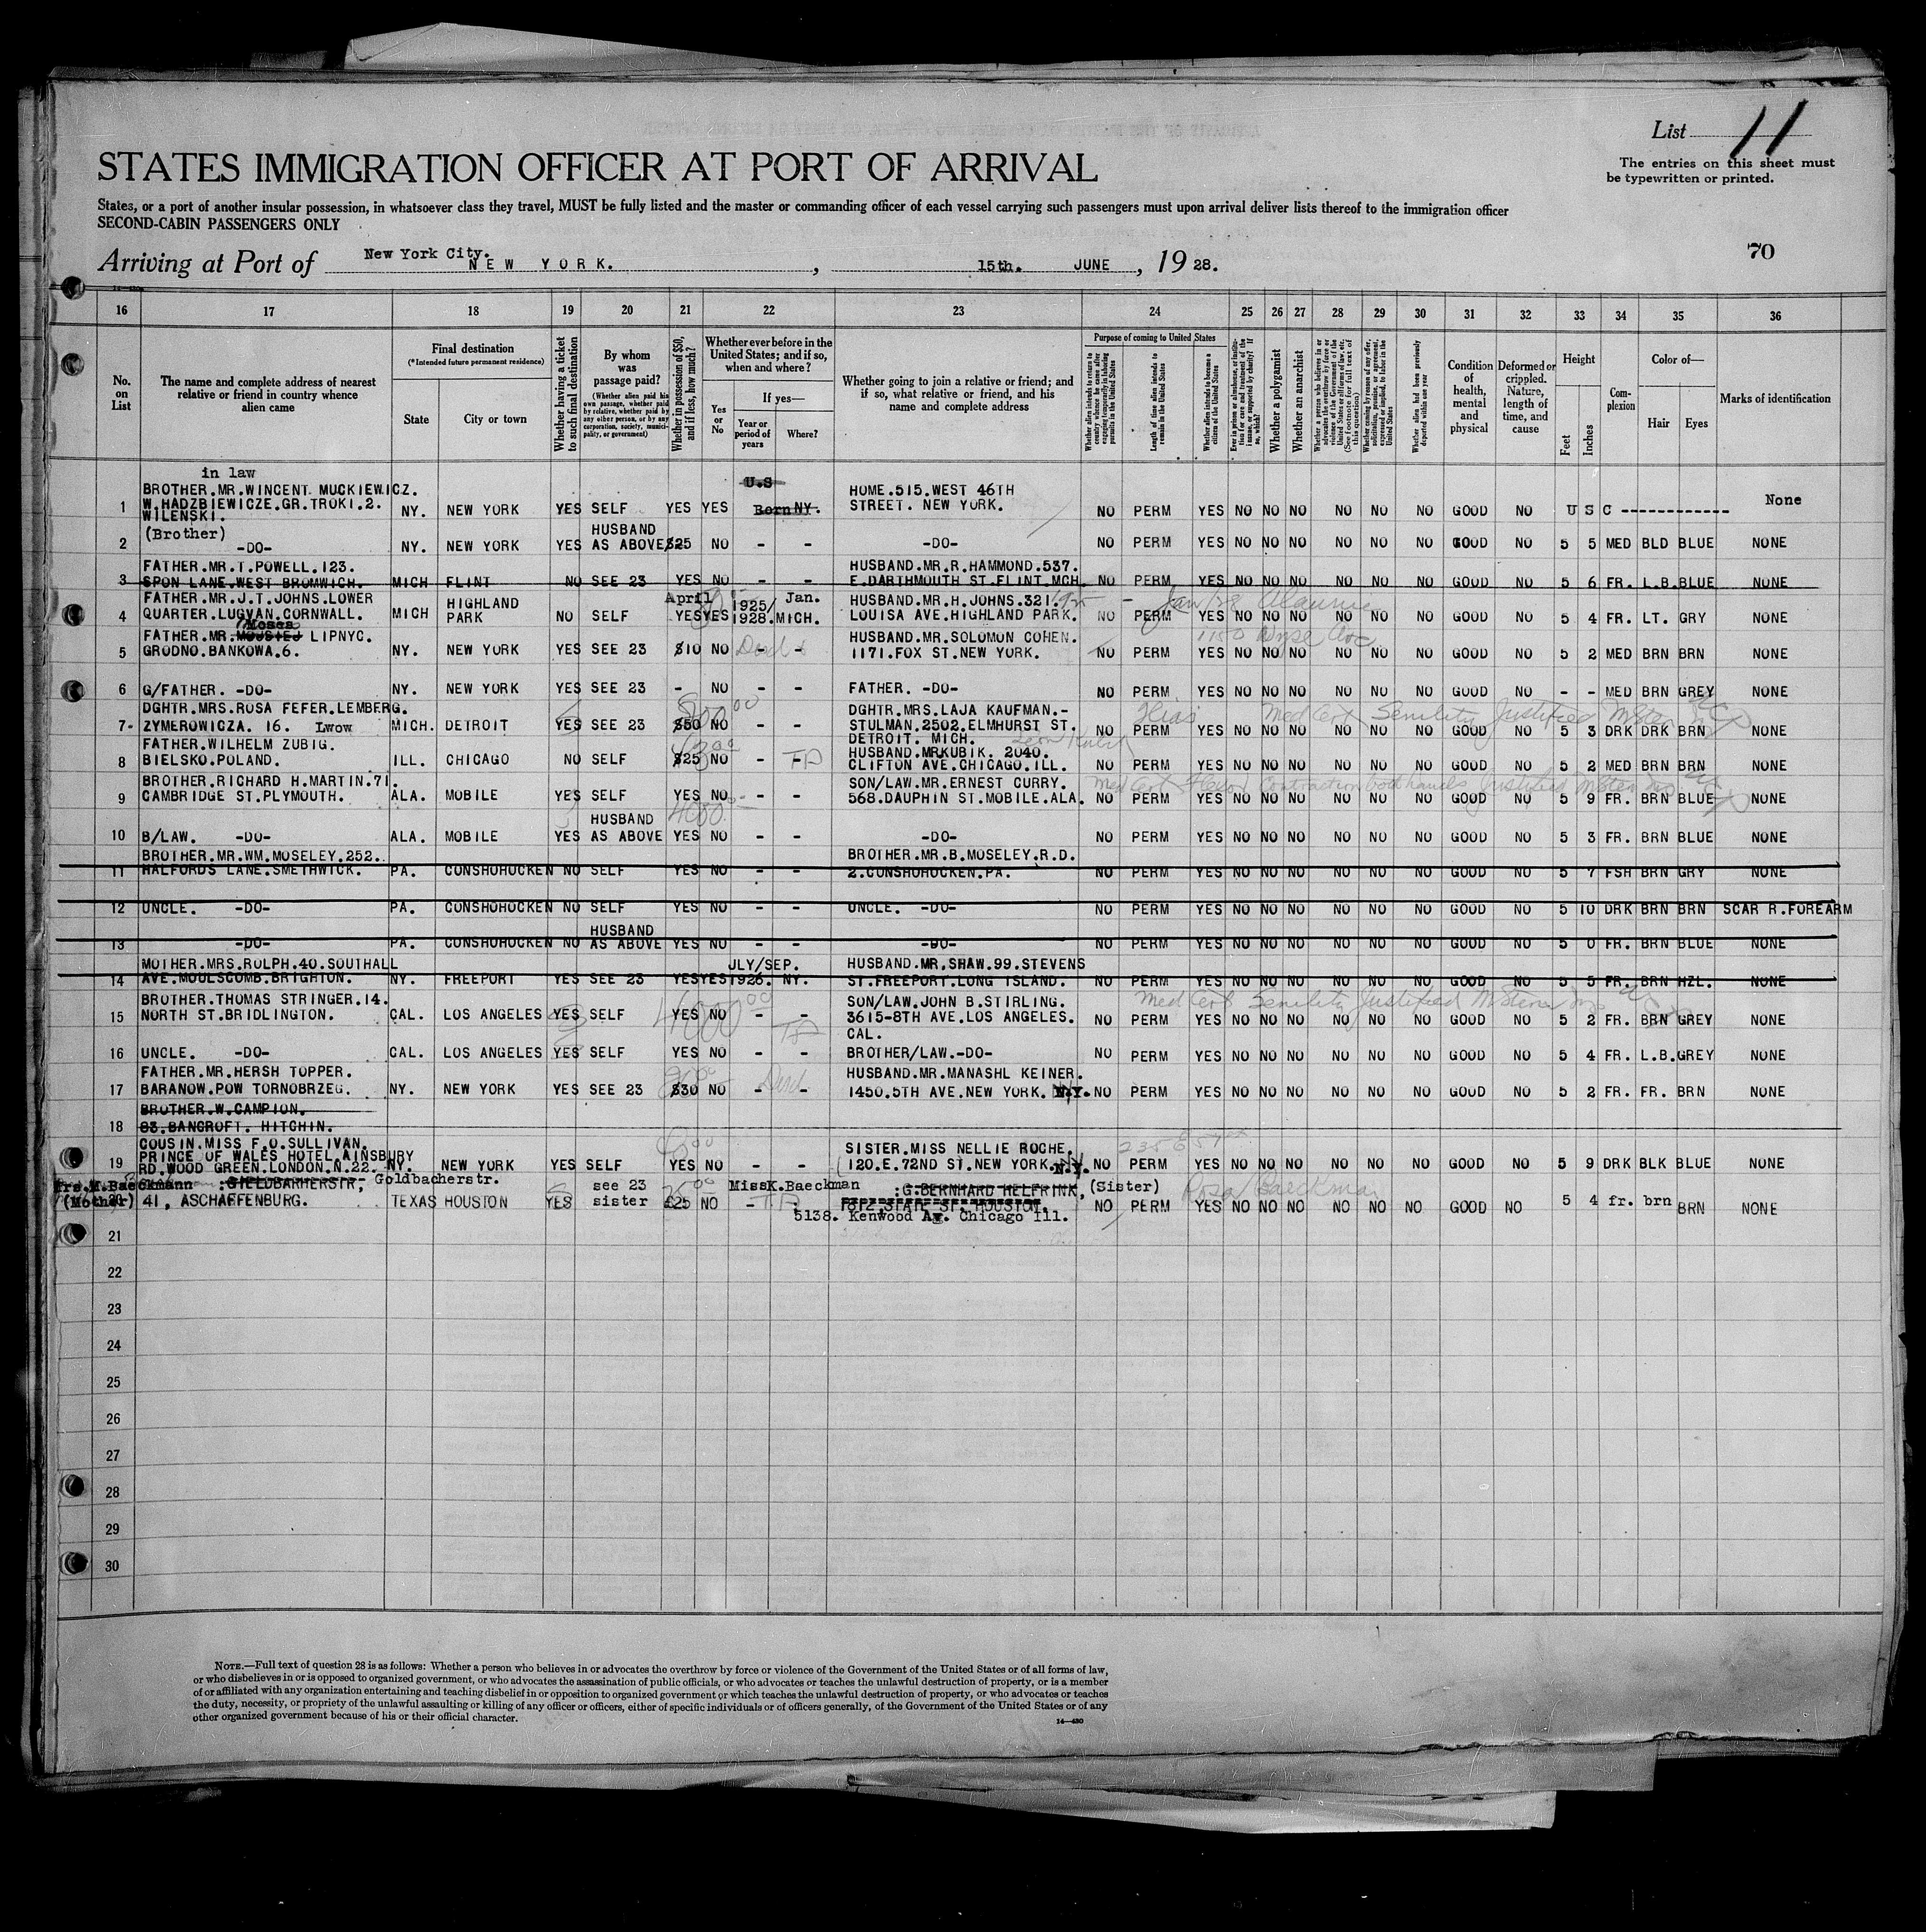 List 11
The entries on this sheet must
be typewritten or printed.
STATES IMMIGRATION OFFICER AT PORT OF ARRIVAL
States, or a port of another insular possession, in whatsoever class they travel, MUST be fully listed and the master or commanding officer of each vessel carrying such passengers must upon arrival deliver lists thereof to the immigration officer
SECOND-CABIN PASSENGERS ONLY
70
Arriving at Port of New York City. NEW YORK. , 15th. JUNE , 1928.
16 17 18 19 20 21 22 23 24 25 26 27 28 29 30 31 32 33 34 35 36
No. on List
The name and complete address of nearest relative or friend in country whence alien came
Final destination (*Intended future permanent residence)
State City or town
Whether having a ticket to such final destination
By whom was passage paid?
(Whether alien paid his own passage, whether paid by relative, whether paid by any other person, or by any corporation, society, municipality, or government)
Whether in possession of $50, and if less, how much?
Whether ever before in the United States; and if so, when and where?
Yes or No
If yes—
Year or period of years Where?
Whether going to join a relative or friend; and if so, what relative or friend, and his name and complete address
Purpose of coming to United States
Whether alien intends to return to country whence he came after engaging temporarily in laboring pursuits in the United States
Length of time alien intends to remain in the United States
Whether alien intends to become a citizen of the United States
Whether a polygamist
Whether an anarchist
Whether alien had been previously deported within one year
Condition of health, mental and physical
Deformed or crippled. Nature, length of time, and cause
Height
Feet Inches
Complexion
Color of—
Hair Eyes
Marks of identification
in law U.S
1 BROTHER.MR.WINCENT MUCKIEWICZ. W.HADZBIEWICZE.GR.TROKI.2. WILENSKI. NY. NEW YORK YES SELF YES YES Born NY. HOME.515.WEST 46TH STREET. NEW YORK. NO PERM YES NO NO NO NO NO NO GOOD NO U S C ------------ None
2 (Brother) -DO- NY. NEW YORK YES HUSBAND AS ABOVE $25 NO - - -DO- NO PERM YES NO NO NO NO NO NO GOOD NO 5 5 MED BLD BLUE NONE
3 FATHER.MR.T.POWELL.123. SPON LANE.WEST BROMWICH. MICH FLINT NO SEE 23 YES NO - - HUSBAND.MR.R.HAMMOND.537. E.DARTHMOUTH ST.FLINT.MCH. NO PERM YES NO NO NO NO NO NO GOOD NO 5 6 FR. L.B. BLUE NONE
4 FATHER.MR.J.T.JOHNS.LOWER QUARTER.LUGVAN.CORNWALL. MICH HIGHLAND PARK NO SELF YES YES April 1925/ Jan. 1928. MICH. HUSBAND.MR.H.JOHNS.321. LOUISA AVE.HIGHLAND PARK. NO PERM YES NO NO NO NO NO NO GOOD NO 5 4 FR. LT. GRY NONE
5 FATHER.MR. Moses LIPNYC. GRODNO.BANKOWA.6. NY. NEW YORK YES SEE 23 $10 NO - - HUSBAND.MR.SOLOMON COHEN. 1171.FOX ST.NEW YORK. NO PERM YES NO NO NO NO NO NO GOOD NO 5 2 MED BRN BRN NONE
6 G/FATHER. -DO- NY. NEW YORK YES SEE 23 - NO - - FATHER. -DO- NO PERM YES NO NO NO NO NO NO GOOD NO - - MED BRN GREY NONE
7- DGHTR.MRS.ROSA FEFER.LEMBERG. ZYMEROWICZA. 16. Lwow MICH. DETROIT YES SEE 23 $50 NO - - DGHTR.MRS.LAJA KAUFMAN.- STULMAN.2502.ELMHURST ST. DETROIT. MICH. Hias Med Cert Senility Justified NO PERM YES NO NO NO NO NO NO GOOD NO 5 3 DRK DRK BRN NONE
8 FATHER.WILHELM ZUBIG. BIELSKO.POLAND. ILL. CHICAGO NO SELF $25 NO - - HUSBAND.MR KUBIK. 2040. CLIFTON AVE.CHICAGO.ILL. NO PERM YES NO NO NO NO NO NO GOOD NO 5 2 MED BRN BRN NONE
9 BROTHER.RICHARD H.MARTIN.71. CAMBRIDGE ST.PLYMOUTH. ALA. MOBILE YES SELF YES NO - - SON/LAW.MR.ERNEST CURRY. 568.DAUPHIN ST.MOBILE.ALA. Med Cert Flexor Contraction both hands Justified NO PERM YES NO NO NO NO NO NO GOOD NO 5 9 FR. BRN BLUE NONE
10 B/LAW. -DO- ALA. MOBILE YES HUSBAND AS ABOVE YES NO - - -DO- NO PERM YES NO NO NO NO NO NO GOOD NO 5 3 FR. BRN BLUE NONE
11 BROTHER.MR.WM.MOSELEY.252. HALFORDS LANE.SMETHWICK. PA. CONSHOHOCKEN NO SELF YES NO - - BROTHER.MR.B.MOSELEY.R.D. 2.CONSHOHOCKEN.PA. NO PERM YES NO NO NO NO NO NO GOOD NO 5 7 FSH BRN GRY NONE
12 UNCLE. -DO- PA. CONSHOHOCKEN NO SELF YES NO - - UNCLE. -DO- NO PERM YES NO NO NO NO NO NO GOOD NO 5 10 DRK BRN BRN SCAR R.FOREARM
13 -DO- PA. CONSHOHOCKEN NO HUSBAND AS ABOVE YES NO - - -DO- NO PERM YES NO NO NO NO NO NO GOOD NO 5 0 FR. BRN BLUE NONE
14 MOTHER.MRS.ROLPH.40.SOUTHALL AVE.MOULSCOMB.BRIGHTON. NY. FREEPORT YES SEE 23 YES YES JLY/SEP. 1926. NY. HUSBAND.MR.SHAW.99.STEVENS ST.FREEPORT.LONG ISLAND. NO PERM YES NO NO NO NO NO NO GOOD NO 5 5 FR. BRN HZL. NONE
15 BROTHER.THOMAS STRINGER.14. NORTH ST.BRIDLINGTON. CAL. LOS ANGELES YES SELF YES NO - - SON/LAW.JOHN B.STIRLING. 3615-8TH AVE.LOS ANGELES. CAL. Med Cert Senility Justified NO PERM YES NO NO NO NO NO NO GOOD NO 5 2 FR. BRN GREY NONE
16 UNCLE. -DO- CAL. LOS ANGELES YES SELF YES NO - - BROTHER/LAW.-DO- NO PERM YES NO NO NO NO NO NO GOOD NO 5 4 FR. L.B. GREY NONE
17 FATHER.MR.HERSH TOPPER. BARANOW.POW TORNOBRZEG. NY. NEW YORK YES SEE 23 $30 NO - - HUSBAND.MR.MANASHL KEINER. 1450.5TH AVE.NEW YORK. N.Y. NO PERM YES NO NO NO NO NO NO GOOD NO 5 2 FR. FR. BRN NONE
18 BROTHER.W.CAMPION. 83.BANCROFT. HITCHIN.
19 COUSIN.MISS F.O.SULLIVAN. PRINCE OF WALES HOTEL.AINSBURY RD.WOOD GREEN.LONDON.N.22. NY. NEW YORK YES SELF YES NO - - SISTER.MISS NELLIE ROCHE. 120.E.72ND ST.NEW YORK. N.Y. NO PERM YES NO NO NO NO NO NO GOOD NO 5 9 DRK BLK BLUE NONE
20 Mrs.M.Baeckmann (Mother) Goldbacherstr. 41, ASCHAFFENBURG. TEXAS HOUSTON YES see 23 sister £25 NO - MissK.Baeckman :G.BERNHARD HELFRINK, (Sister) 5138. Kenwood Av. Chicago Ill. Rosa Baeckman NO PERM YES NO NO NO NO NO NO GOOD NO 5 4 fr. brn BRN NONE
21
22
23
24
25
26
27
28
29
30
NOTE.—Full text of question 28 is as follows: Whether a person who believes in or advocates the overthrow by force or violence of the Government of the United States or of all forms of law,
or who disbelieves in or is opposed to organized government, or who advocates the assassination of public officials, or who advocates or teaches the unlawful destruction of property, or is a member
of or affiliated with any organization entertaining and teaching disbelief in or opposition to organized government or which teaches the unlawful destruction of property, or who advocates or teaches
the duty, necessity, or propriety of the unlawful assaulting or killing of any officer or officers, either of specific individuals or of officers generally, of the Government of the United States or of any
other organized government because of his or their official character.
14—430